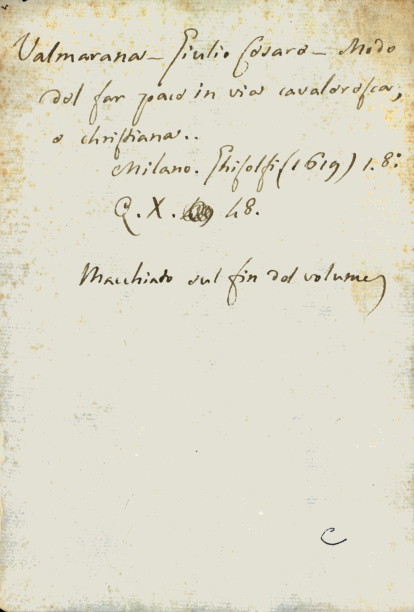 Valmarana - Giulio Cesare - Modo
del far pace in via cavaleresca,
e christiana..
Milano. Ghisolfi (1619) 1.8:
Q. X. 48.
Macchiato sul fin del volume
C